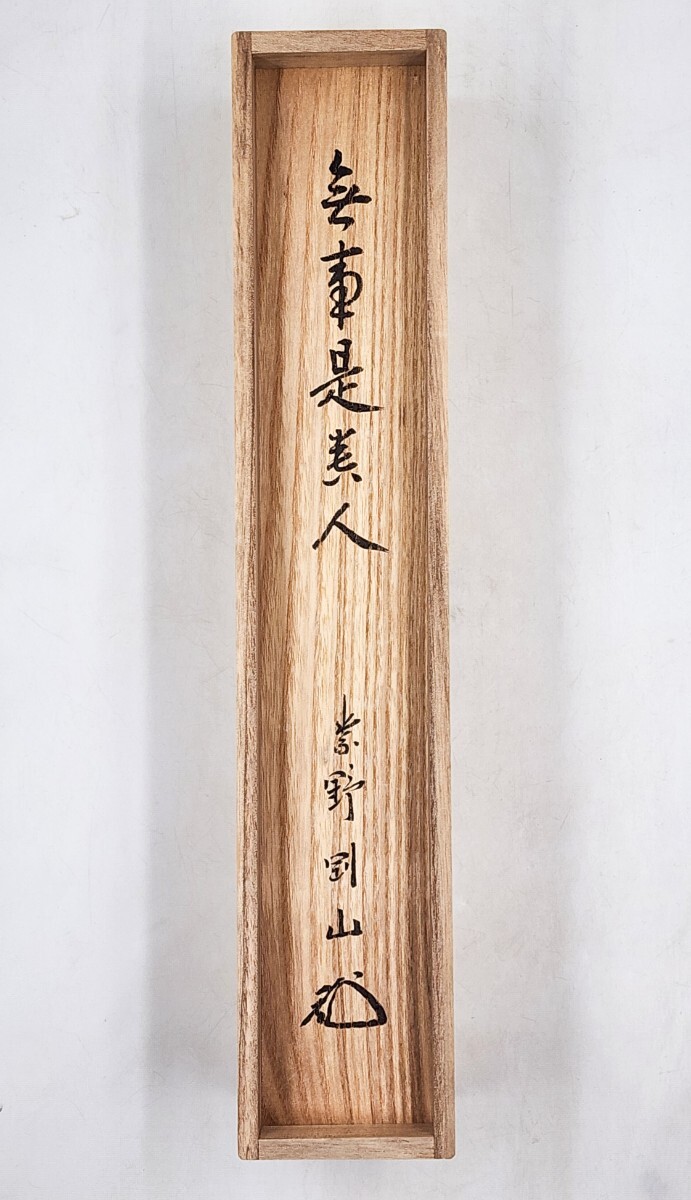 無事是貴人
紫野剛山